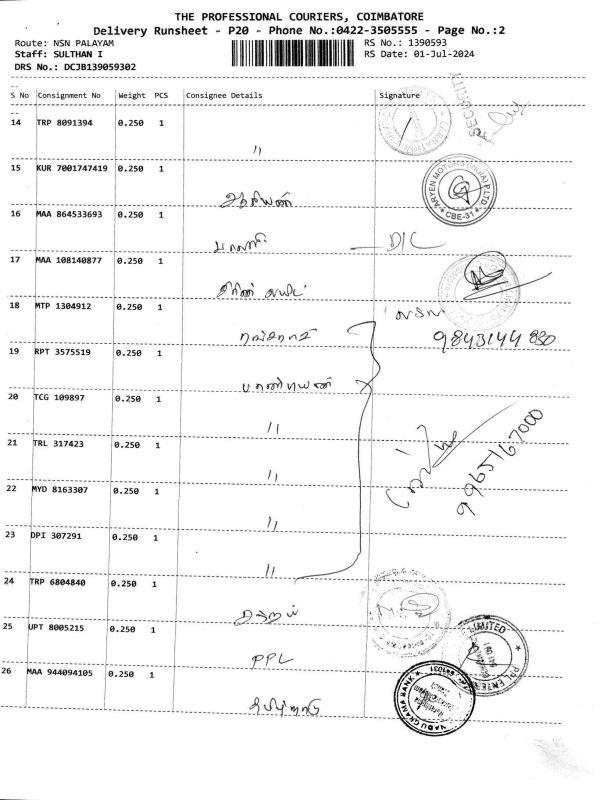 THE PROFESSIONAL COURIERS, COIMBATORE
Delivery Runsheet - P20 - Phone No.:0422-3505555 - Page No.:2
Route: NSN PALAYAM
RS No.: 1390593
Staff: SULTHAN I
RS Date: 01-Jul-2024
DRS No.: DCJB139059302
S No Consignment No Weight PCS Consignee Details Signature
SECURITY
14 TRP 8091394 0.250 1
"
15 KUR 7001747419 0.250 1
ARYEN MOTORS (INDIA) P LTD.
CBE-31
16 MAA 864533693 0.250 1
பாலாஜி D/C
17 MAA 108140877 0.250 1
18 MTP 1304912 0.250 1
9843144 830
19 RPT 3575519 0.250 1
பாண்டியன்
20 TCG 109897 0.250 1
"
21 TRL 317423 0.250 1
"
9965167000
22 MYD 8163307 0.250 1
"
23 DPI 307291 0.250 1
"
24 TRP 6804840 0.250 1
25 UPT 8005215 0.250 1
PPL
LIMITED
26 MAA 944094105 0.250 1
தமிழ்நாடு
GRAMA BANK